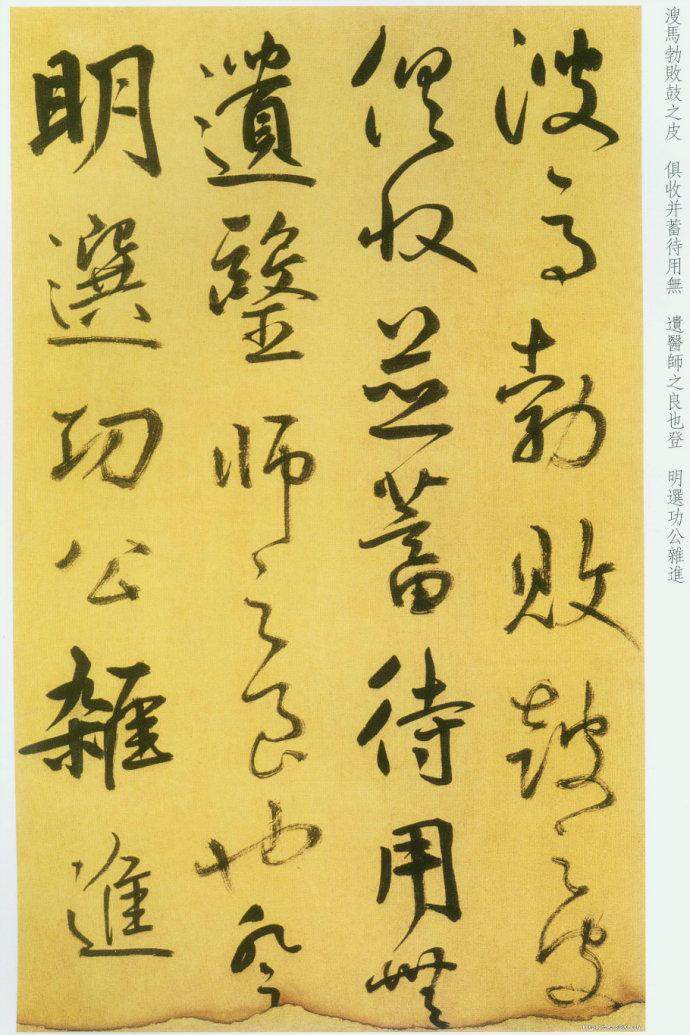 溲馬勃敗鼓之皮　俱收并蓄待用無　遺醫師之良也登　明選功公雜進
溲馬勃敗鼓之皮
俱收並蓄待用無
遺醫師之良也登
明選功公雜進